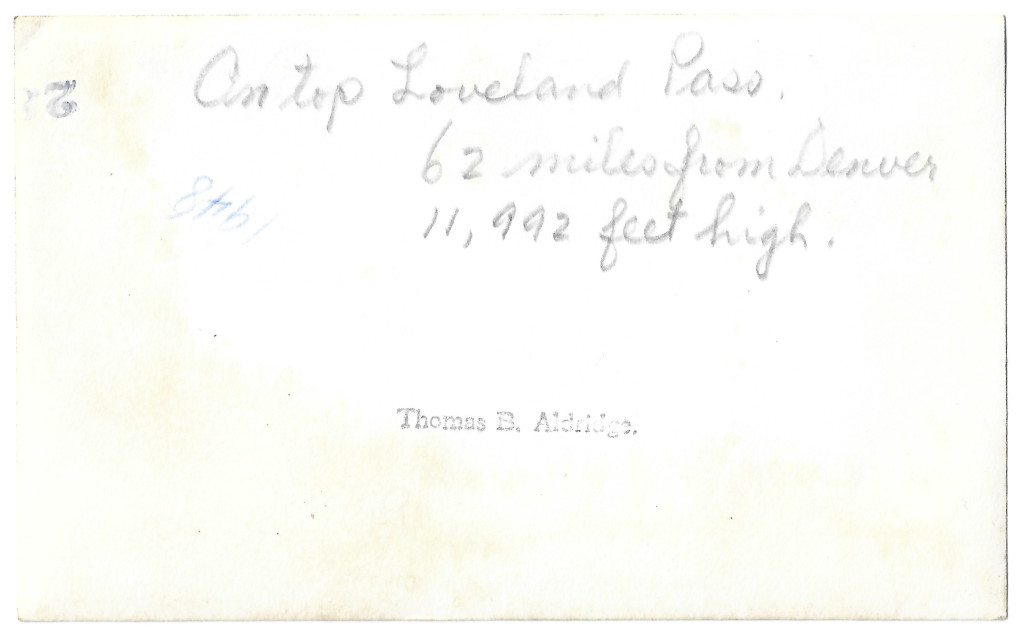 On top Loveland Pass.
62 miles from Denver
1948
11,992 feet high.
Thomas B. Aldridge.